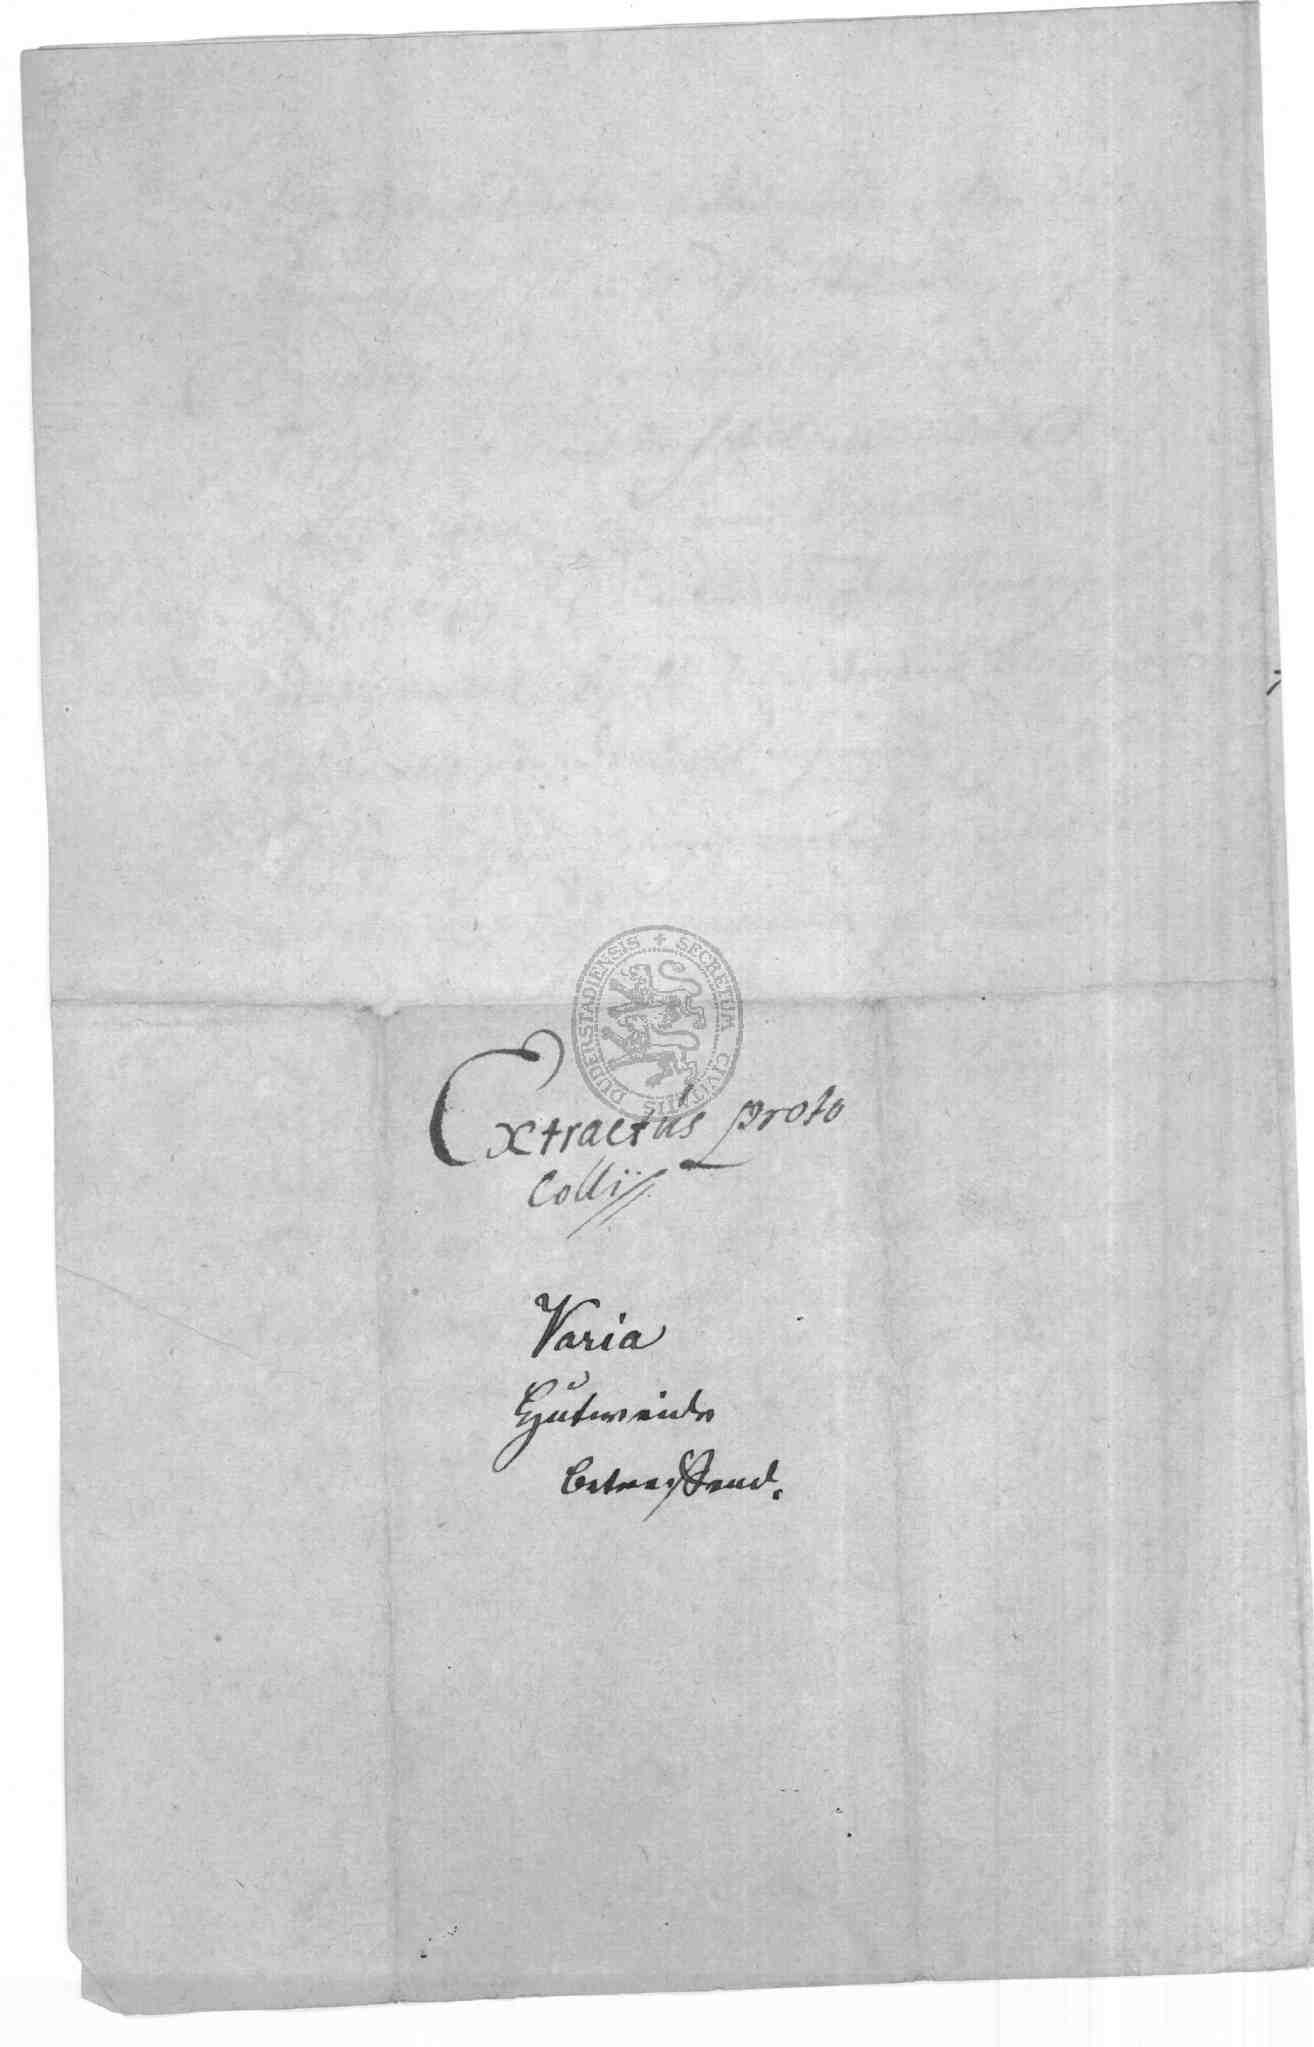 SECRETUM CIVITATIS DUDERSTADIENSIS
Extractus proto
Collii
Varia
Hutweide
betreffend.